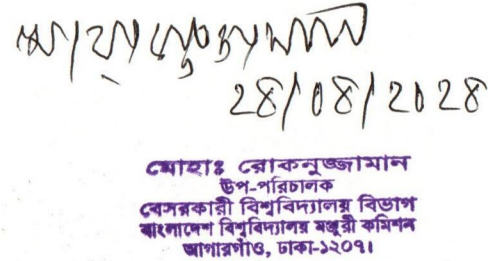 ২৪/০৪/২০২৪
মোহাঃ রোকনুজ্জামান
উপ-পরিচালক
বেসরকারী বিশ্ববিদ্যালয় বিভাগ
বাংলাদেশ বিশ্ববিদ্যালয় মঞ্জুরী কমিশন
আগারগাঁও, ঢাকা-১২০৭।